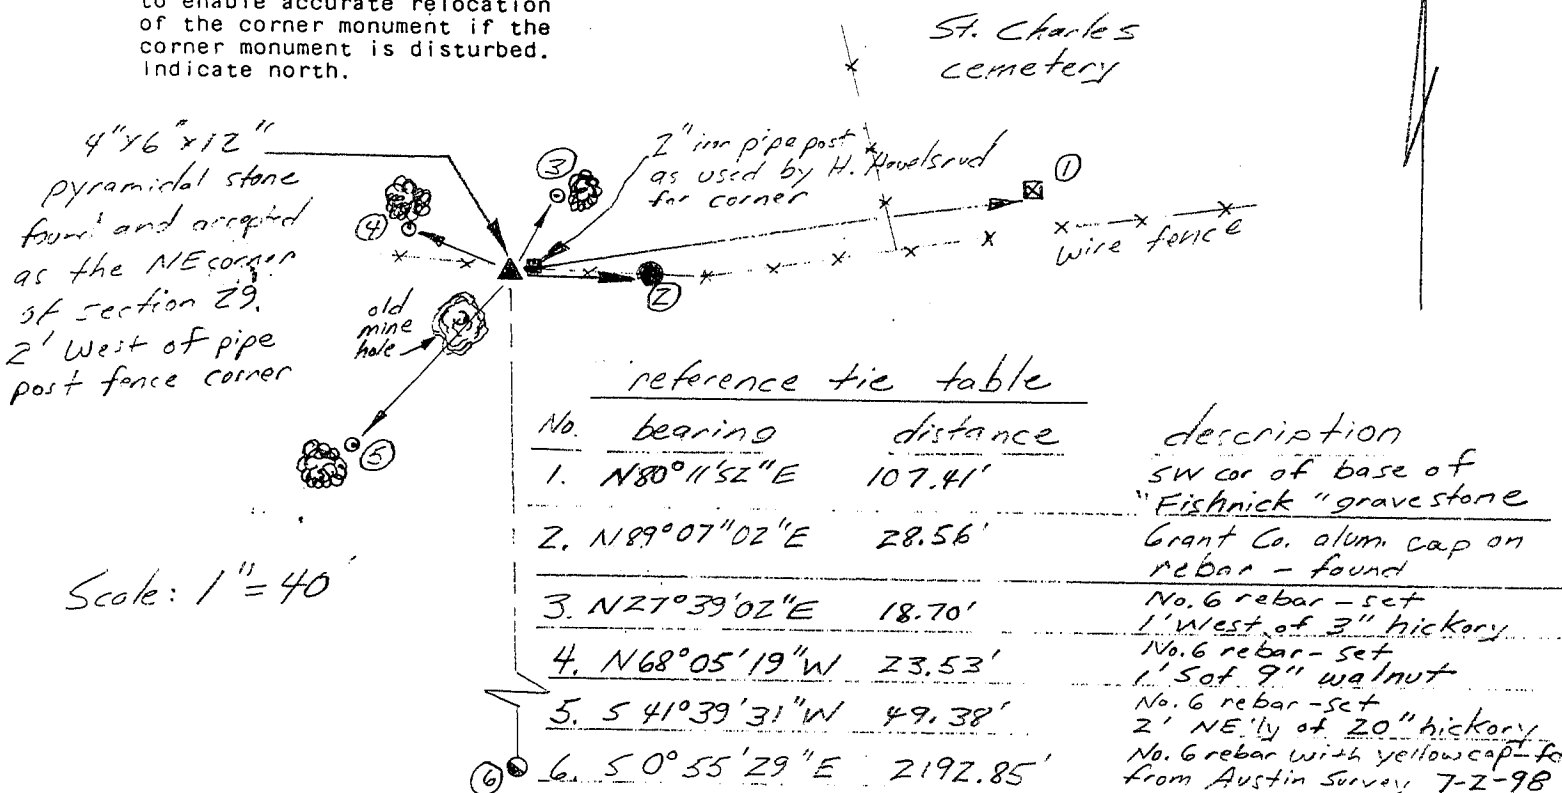 to enable accurate relocation
of the corner monument if the
corner monument is disturbed.
Indicate north.
St. Charles
cemetery
4"x6"x12"
pyramidal stone
found and accepted
as the NE corner
of section 29.
2' West of pipe
post fence corner
2" iron pipe post
as used by H. Hovelsrud
for corner
1
2
3
4
5
6
wire fence
old
mine
hole
Scale: 1"=40'
reference tie table
No. bearing distance description
1. N80°11'52"E 107.41' SW cor of base of
"Fishnick" gravestone
2. N89°07"02"E 28.56' Grant Co. alum. cap on
rebar - found
3. N27°39'02"E 18.70' No. 6 rebar - set
1' West of 3" hickory
4. N68°05'19"W 23.53' No. 6 rebar - set
1' S of 9" walnut
5. S 41°39'31"W 49.38' No. 6 rebar - set
2' NE'ly of 20" hickory
6. S 0°55'29"E 2192.85' No. 6 rebar with yellow cap - fo
from Austin Survey 7-2-98